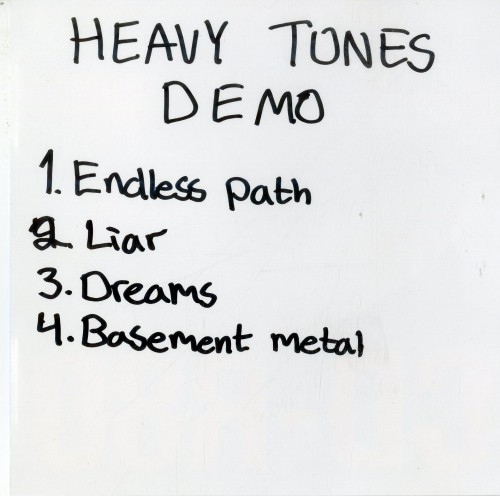 HEAVY TUNES
DEMO
1. Endless path
2. Liar
3. Dreams
4. Basement metal